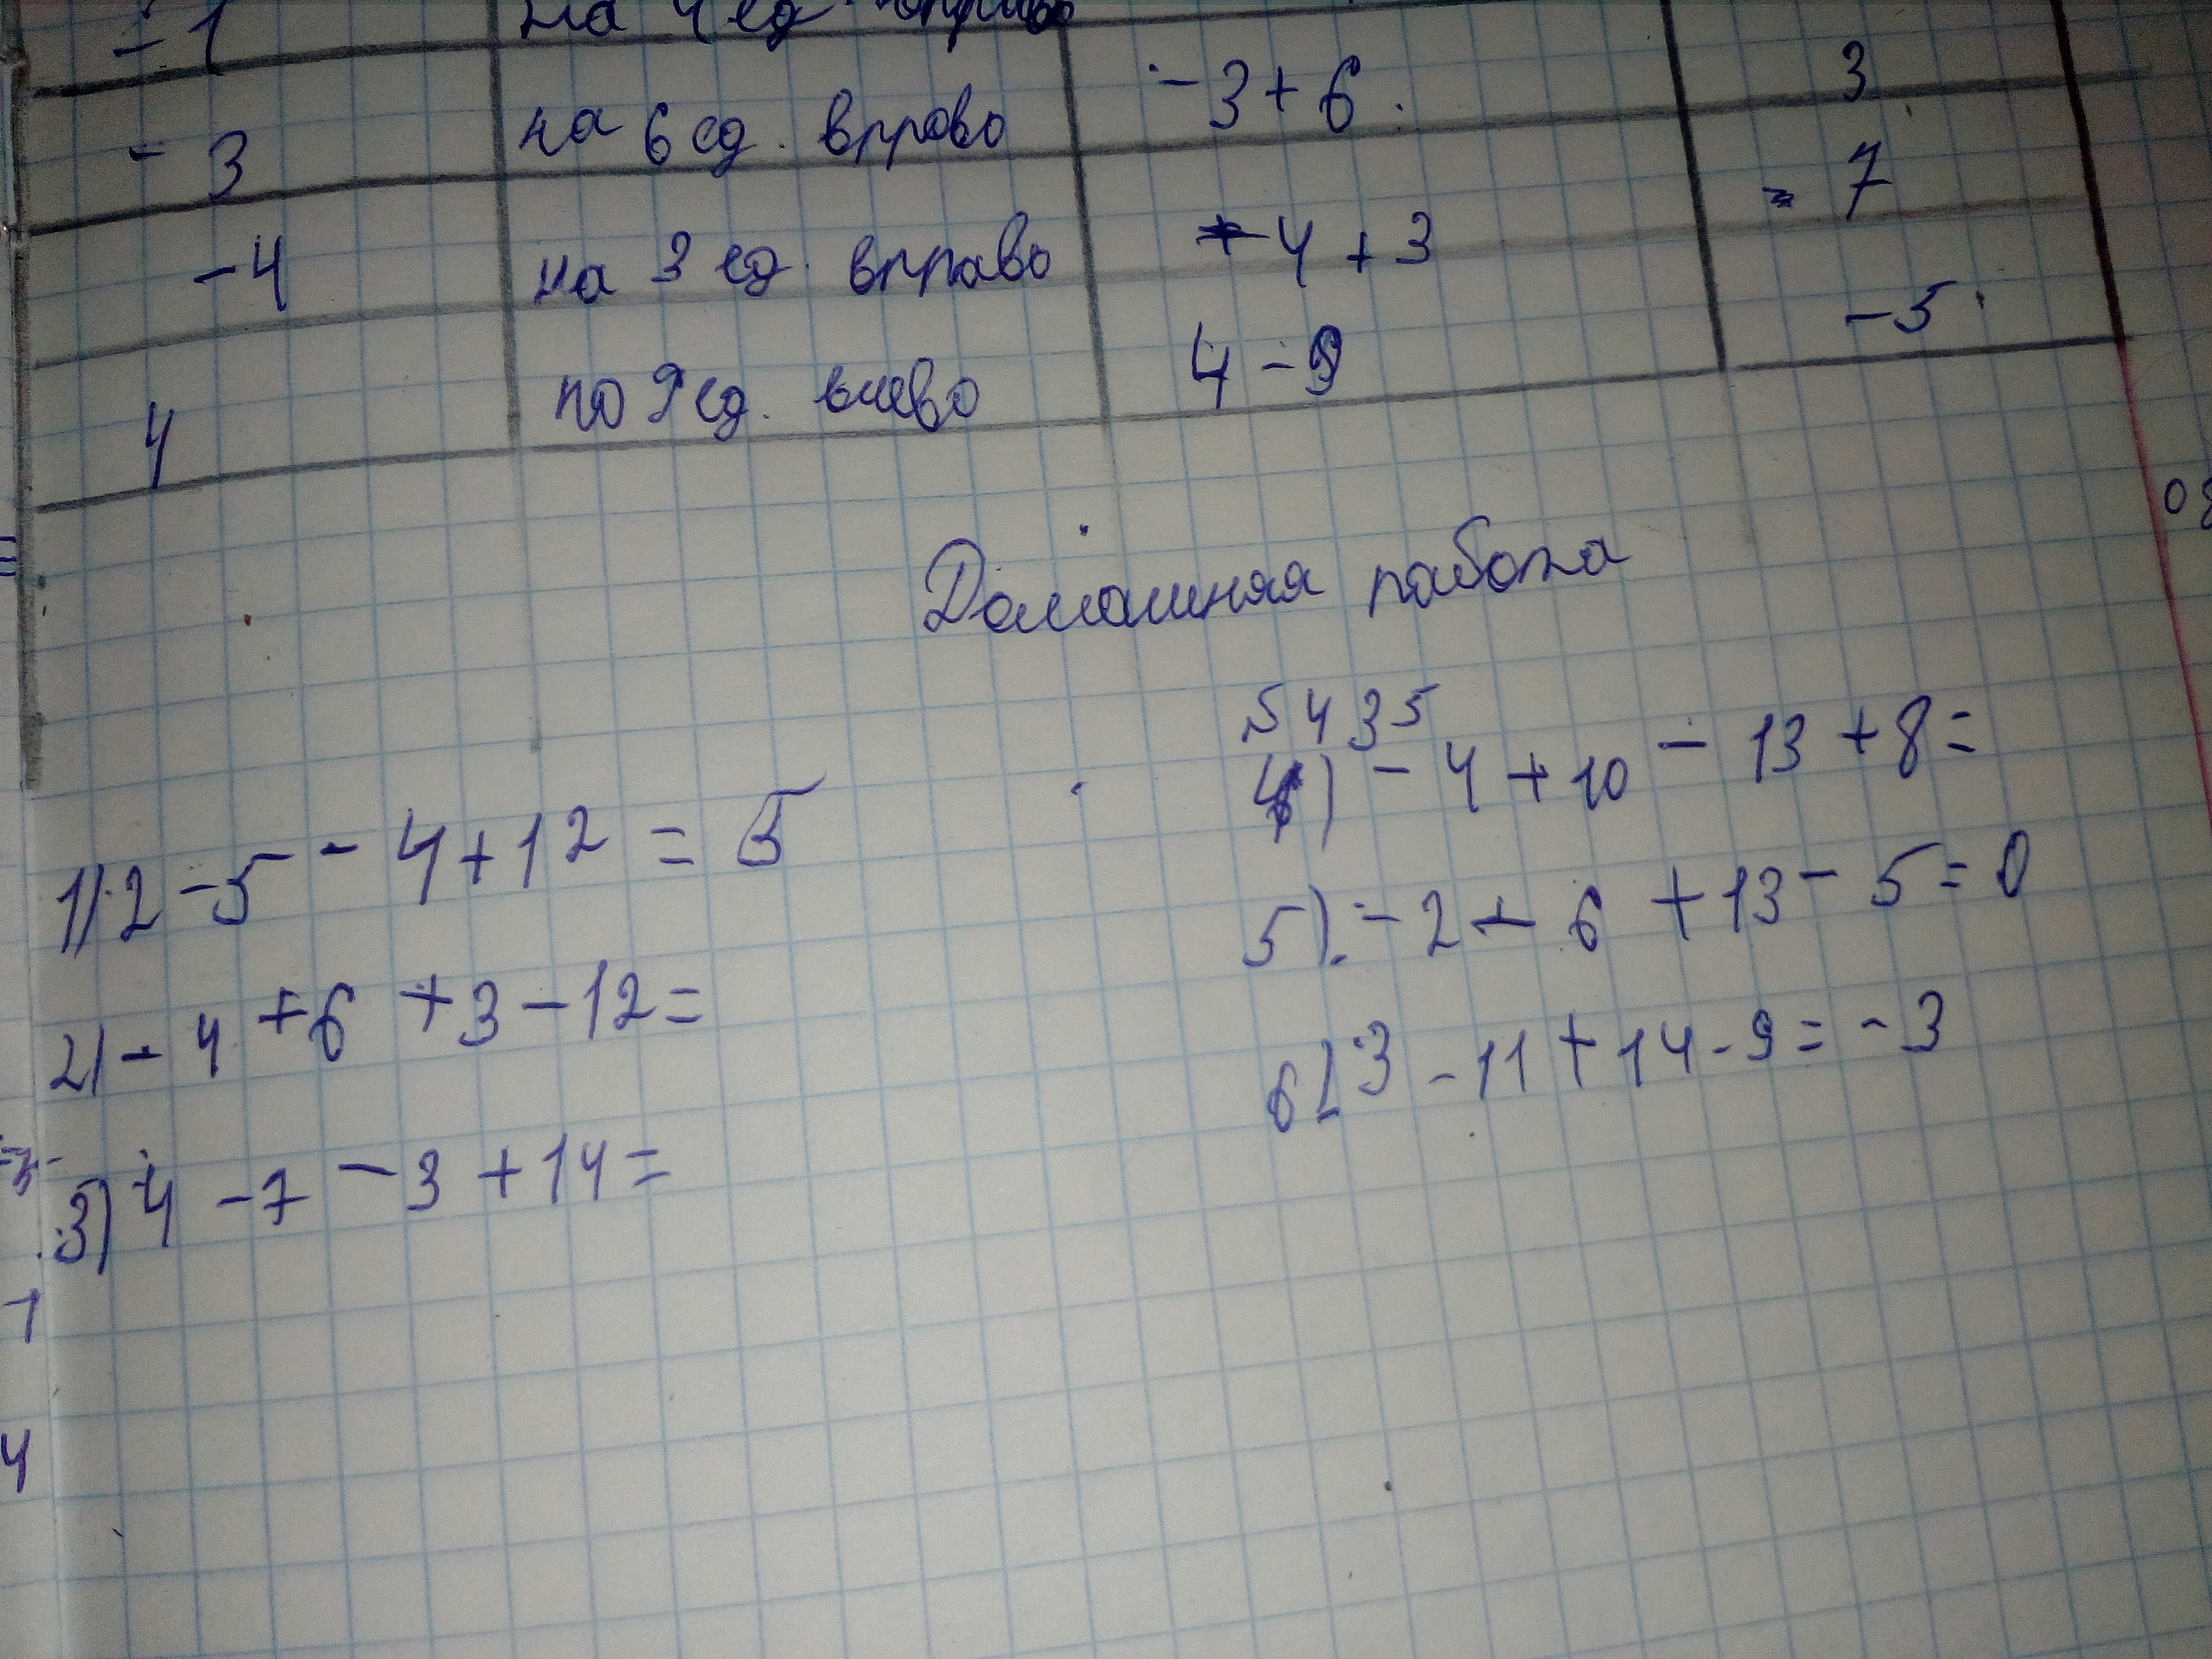 -1 на 4 ед. вправо
-3 на 6 ед. вправо -3+6 3
-4 на 3 ед. вправо -4+3 -7
4 по 9 ед. влево 4-9 -5
Домашняя работа
5435
1) 2-5-4+12=5
2) -4+6+3-12=
3) 4-7-3+14=
4) -4+10-13+8=
5) -2-6+13-5=0
6) 3-11+14-9=-3